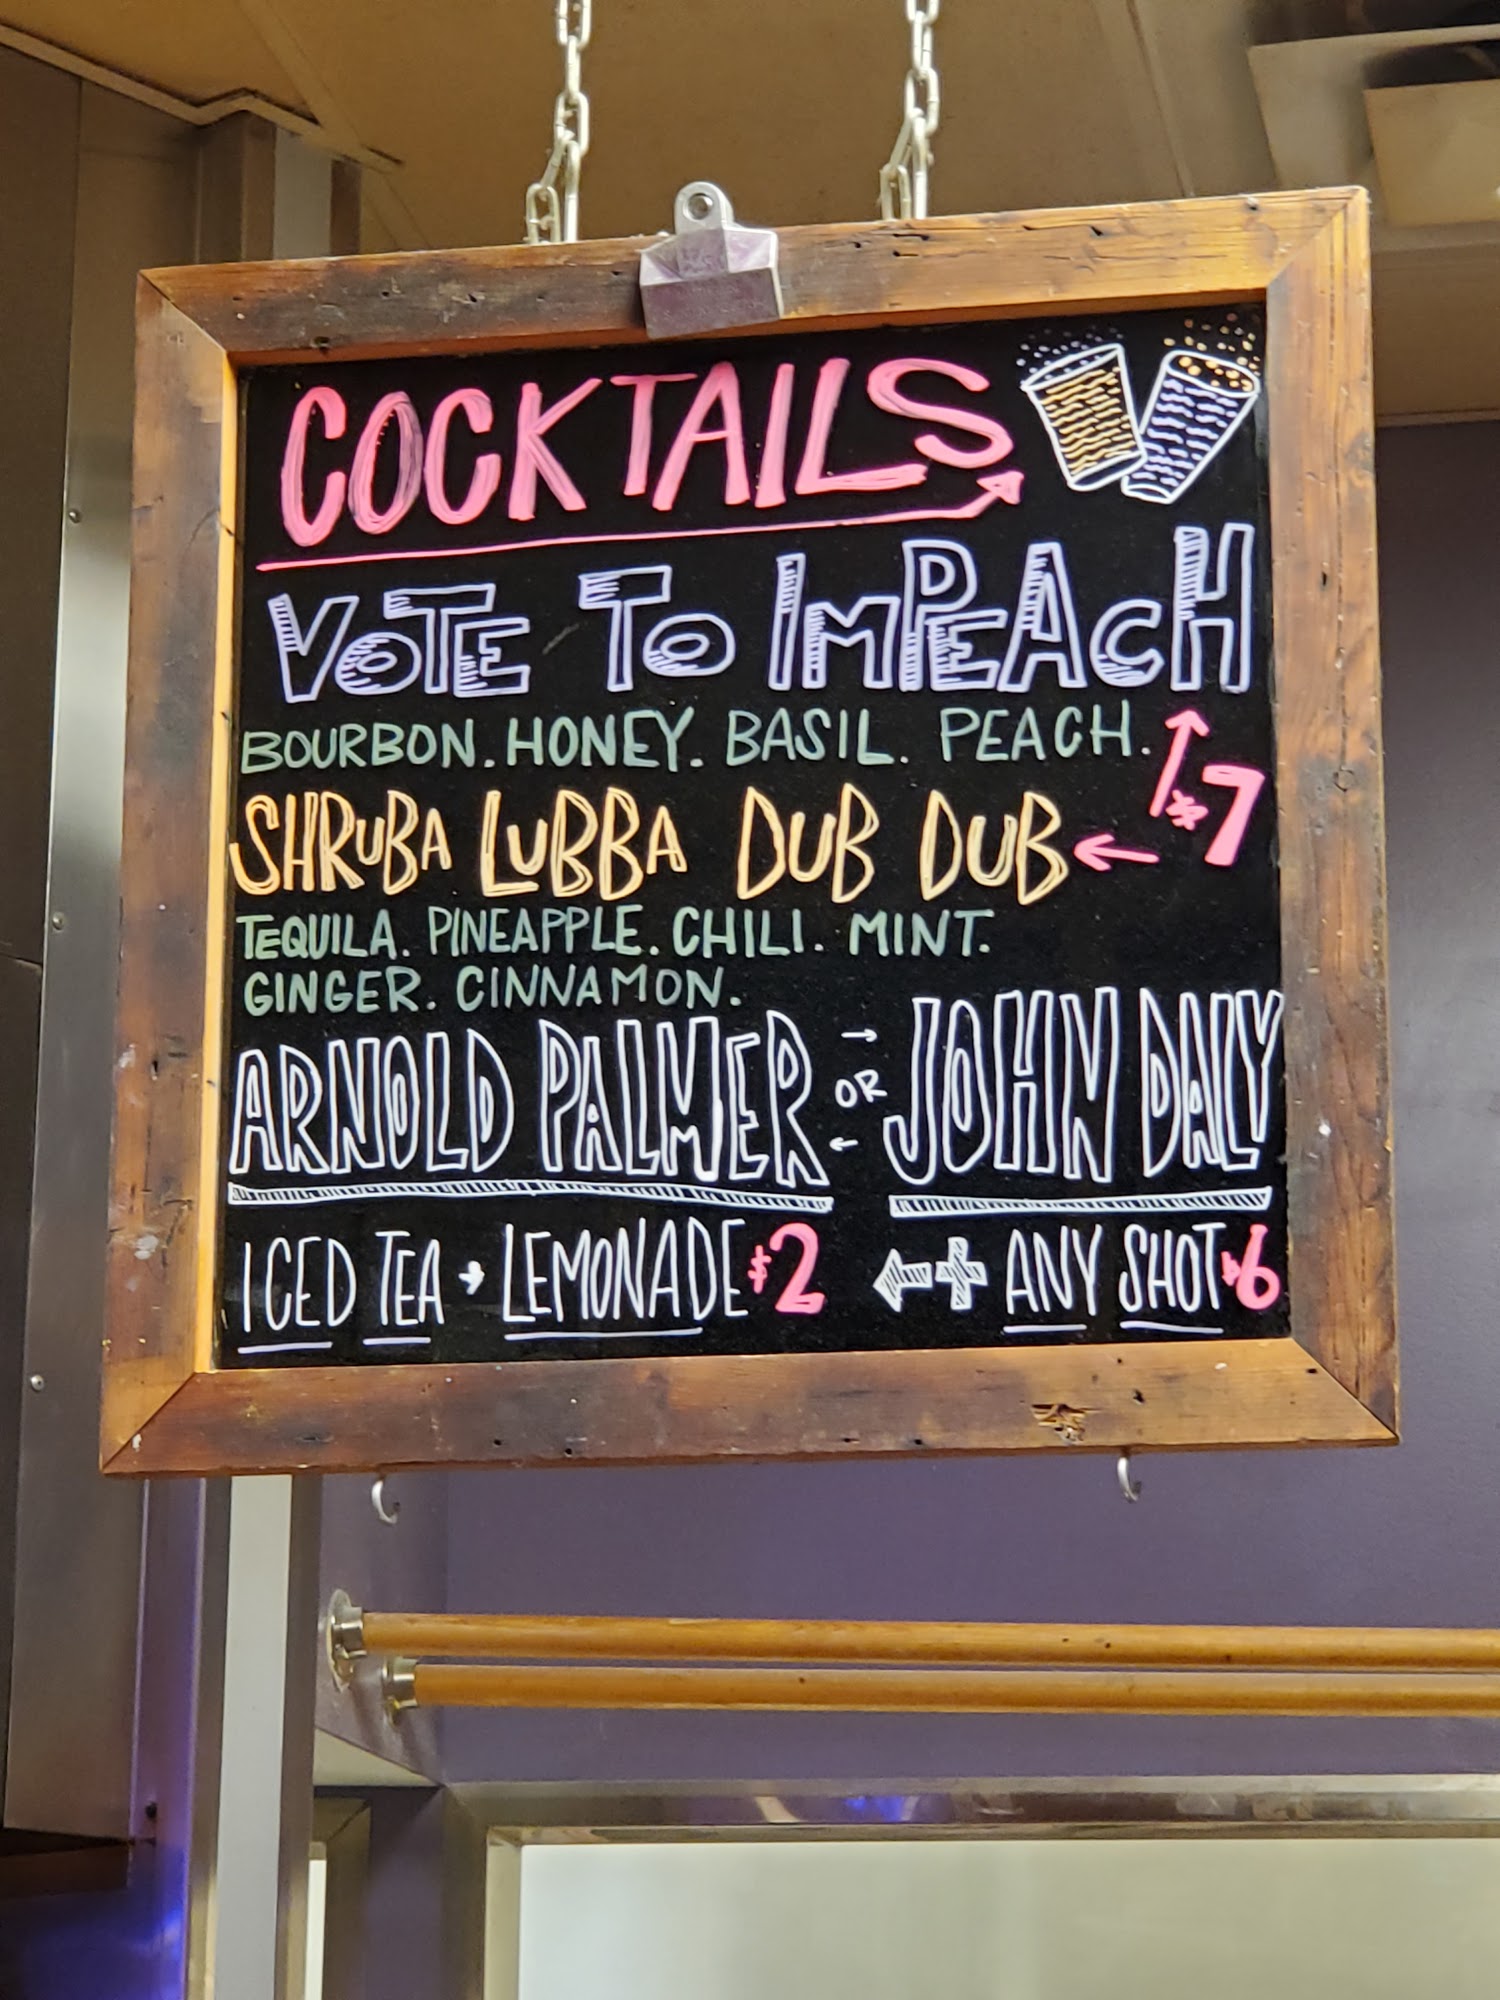 COCKTAILS
VOTE TO IMPEACH
BOURBON. HONEY. BASIL. PEACH.
$7
SHRUBA LUBBA DUB DUB
TEQUILA. PINEAPPLE. CHILI. MINT.
GINGER. CINNAMON.
ARNOLD PALMER → OR ← JOHN DALY
ICED TEA + LEMONADE $2 ← + ANY SHOT $6